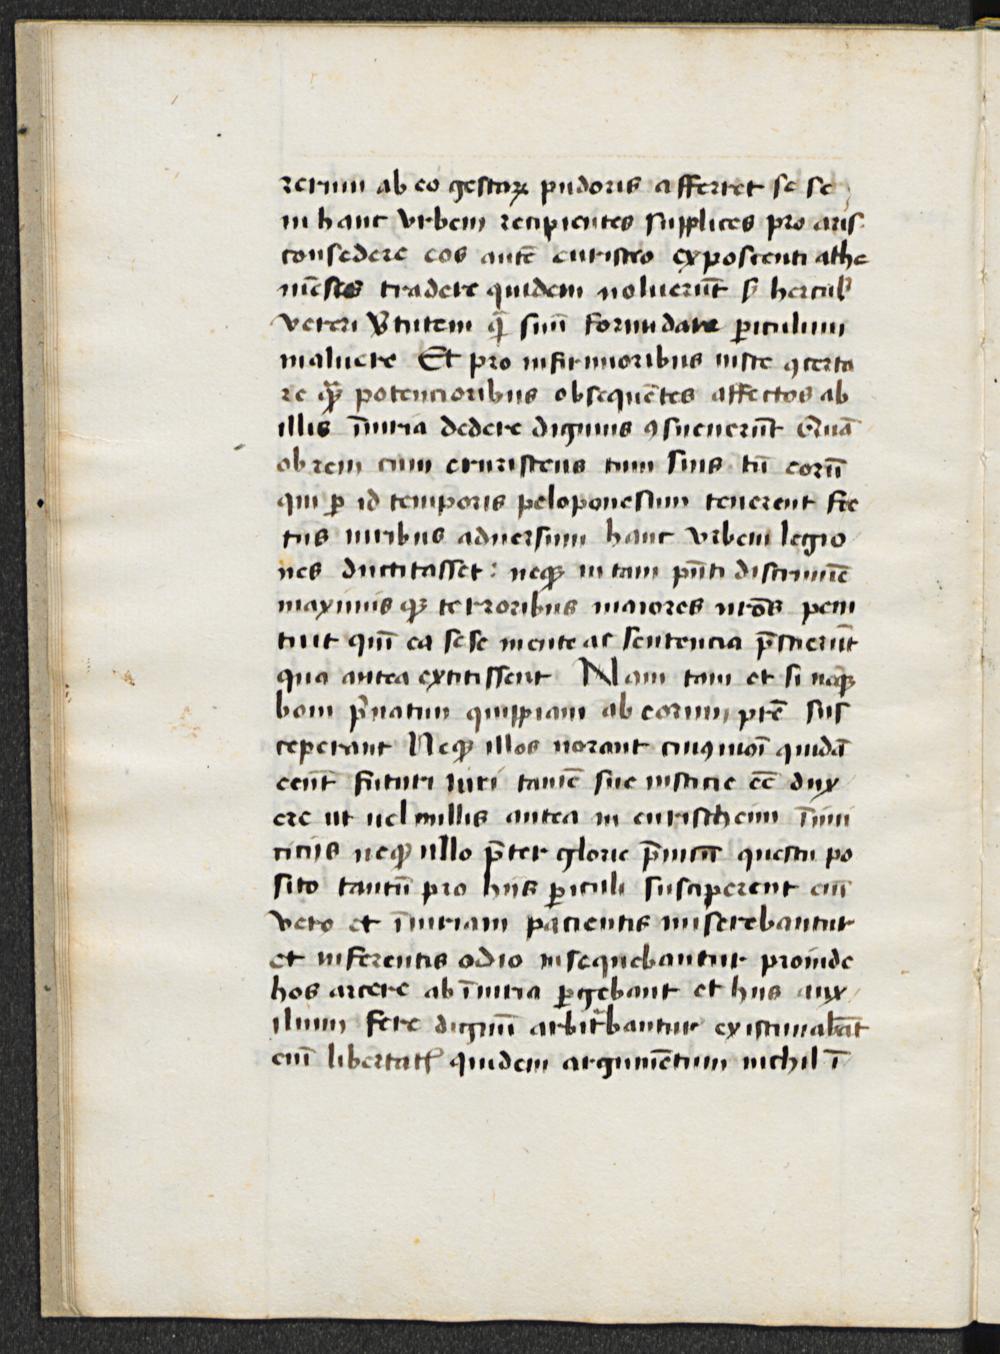 rerum ab eo gestoꝝ pudoris afferret se se
in hanc vrbem recipientes supplices pro aris
consedere eos autē euristeo exposcenti athe
niēses tradere quidem noluerūt ſꝫ hercul
veteri v̄tutem q̄ suū formidare ꝑiculum
maluere Et pro infirmioribus iuste ꝯcerta
re qꝫ potencioribus obsequētes affectos ab
illis īiuria dedere dignius ꝯsueuerūt Quā
ob rem cum eruristeus cum suis tū eorū
qui ꝑ id temporis peloponessum tenerent fre
tus uiribus aduersum hanc vrbem legio
nes ductitasset : neqꝫ in tam pn̄ti discrimīe
maximis qꝫ terroribus maiores nr̄os peni
tuit quī ea sese mente ac sentencia p̄stierūt
qua antea extitissent Nam tam et si neqꝫ
boni p̄uatim quippiam ab eorum pr̄e sus
ceperant Neqꝫ illos norant cuiꝯmōi quidā
eent futuri uiri tamē sue iusticie eē dux
ere ut uel nullis antea in euristheum īimi
citijs neqꝫ ullo p̄ter glorie p̄miū questu po
sito tantū pro hijs ꝑiculi susciperent cū
vero et īiuriam pacientis miserebantur
et inferentis odio insequebantur proinde
hos arcere ab īiuria ꝑgebant et hijs aux
ilium fere dignū arbitrabantur existimabāt
enī libertatis quidem argumētum nichil ī